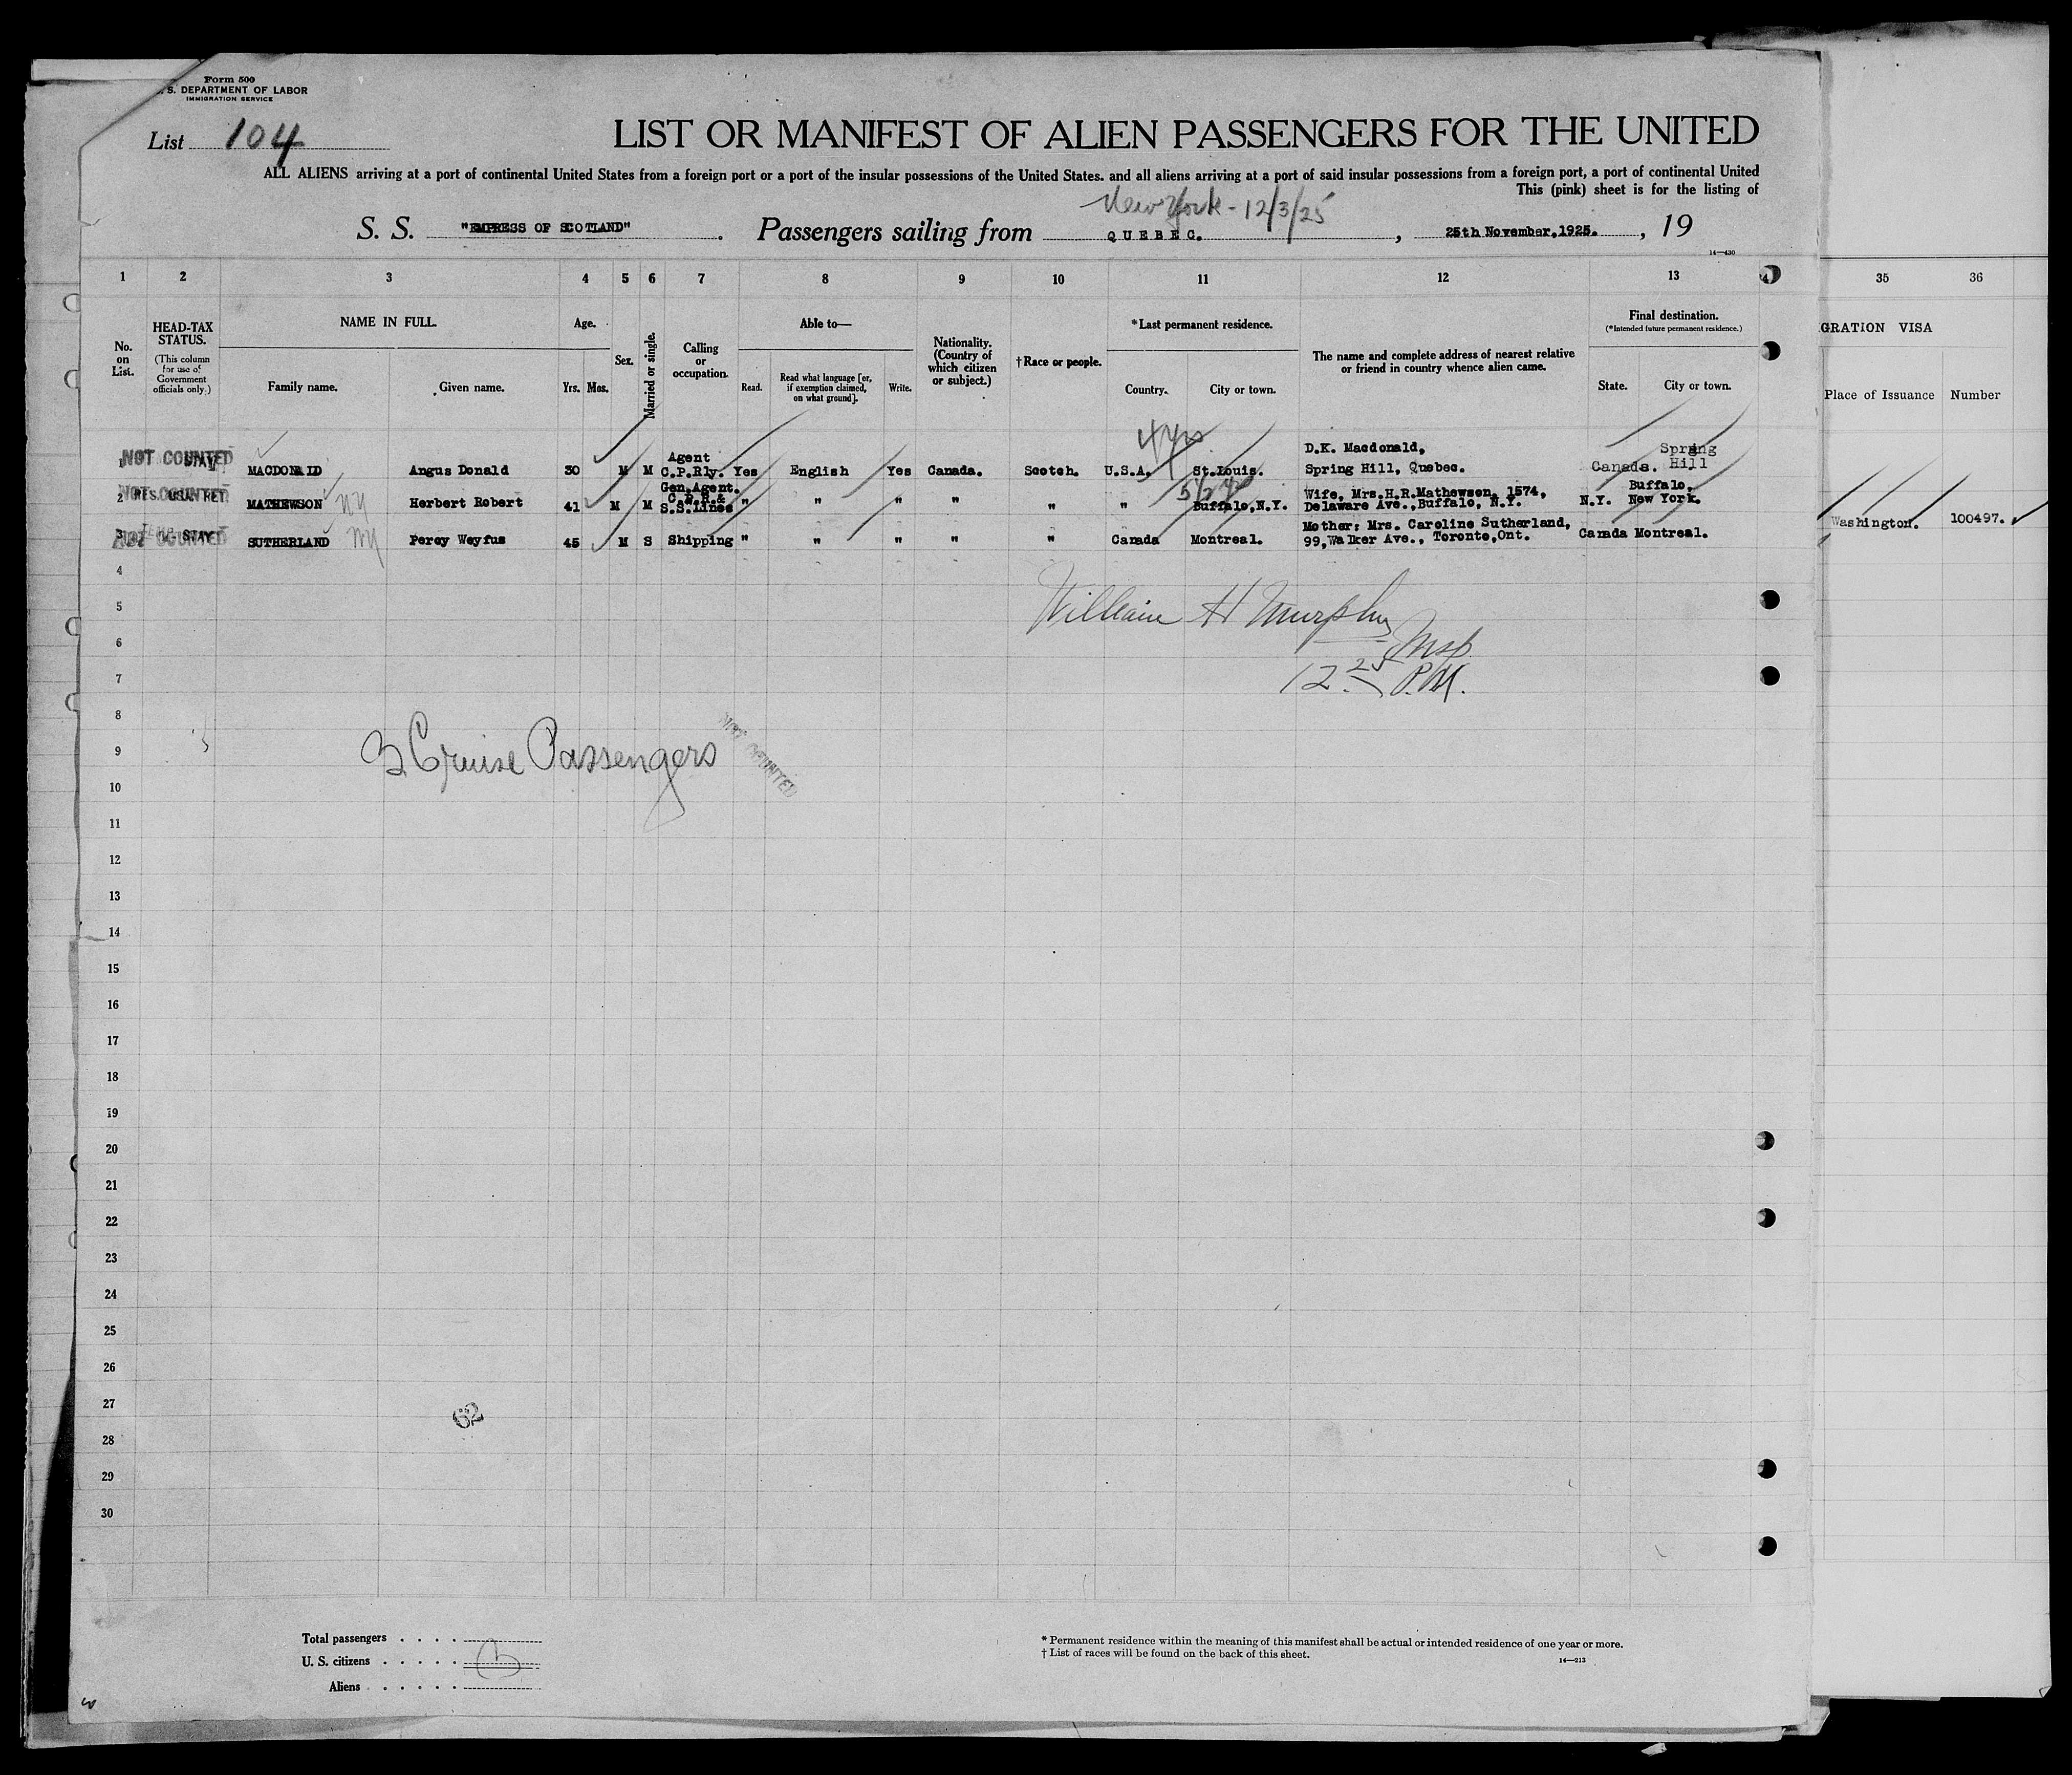 Form 500
S. DEPARTMENT OF LABOR
IMMIGRATION SERVICE
List 104
LIST OR MANIFEST OF ALIEN PASSENGERS FOR THE UNITED
ALL ALIENS arriving at a port of continental United States from a foreign port or a port of the insular possessions of the United States. and all aliens arriving at a port of said insular possessions from a foreign port, a port of continental United
This (pink) sheet is for the listing of
New York - 12/3/25
S. S. "EMPRESS OF SCOTLAND" . Passengers sailing from QUEBEC. , 25th November,1925. , 19
14—430
1 2 3 4 5 6 7 8 9 10 11 12 13 35 36
No. on List.
HEAD-TAX STATUS.
(This column for use of Government officials only.)
NAME IN FULL.
Family name. Given name.
Age.
Yrs. Mos.
Sex.
Married or single.
Calling or occupation.
Able to—
Read. Read what language [or, if exemption claimed, on what ground]. Write.
Nationality. (Country of which citizen or subject.)
†Race or people.
*Last permanent residence.
Country. City or town.
The name and complete address of nearest relative or friend in country whence alien came.
Final destination.
(*Intended future permanent residence.)
State. City or town.
GRATION VISA
Place of Issuance Number
1 NOT COUNTED STAY MACDONALD Angus Donald 30 M M Agent C.P.Rly. Yes English Yes Canada. Scotch. U.S.A. 4 yrs St.Louis. D.K. Macdonald, Spring Hill, Quebec. Canada. Spring Hill
2 NOT COUNTED RES. USA. RET MATHEWSON NY Herbert Robert 41 M M Gen.Agent. C.P.R.& S.S.Lines " " " " " " 5 1/2 yrs Buffalo,N.Y. Wife, Mrs.H.R.Mathewson, 1574, Delaware Ave.,Buffalo, N.Y. N.Y. Buffalo, New York. Washington. 100497.
3 NOT COUNTED STAY SUTHERLAND Percy Weyfus 45 M S Shipping " " " " " Canada Montreal. Mother: Mrs. Caroline Sutherland, 99,Walker Ave., Toronto,Ont. Canada Montreal.
4
5
William H Murphy
6
Insp.
7
12.25 P.M.
8
9
3 Cruise Passengers
NOT COUNTED
10
11
12
13
14
15
16
17
18
19
20
21
22
23
24
25
26
27
62
28
29
30
Total passengers . . . .
U. S. citizens . . . . .
Aliens . . . . .
* Permanent residence within the meaning of this manifest shall be actual or intended residence of one year or more.
† List of races will be found on the back of this sheet.
14—213